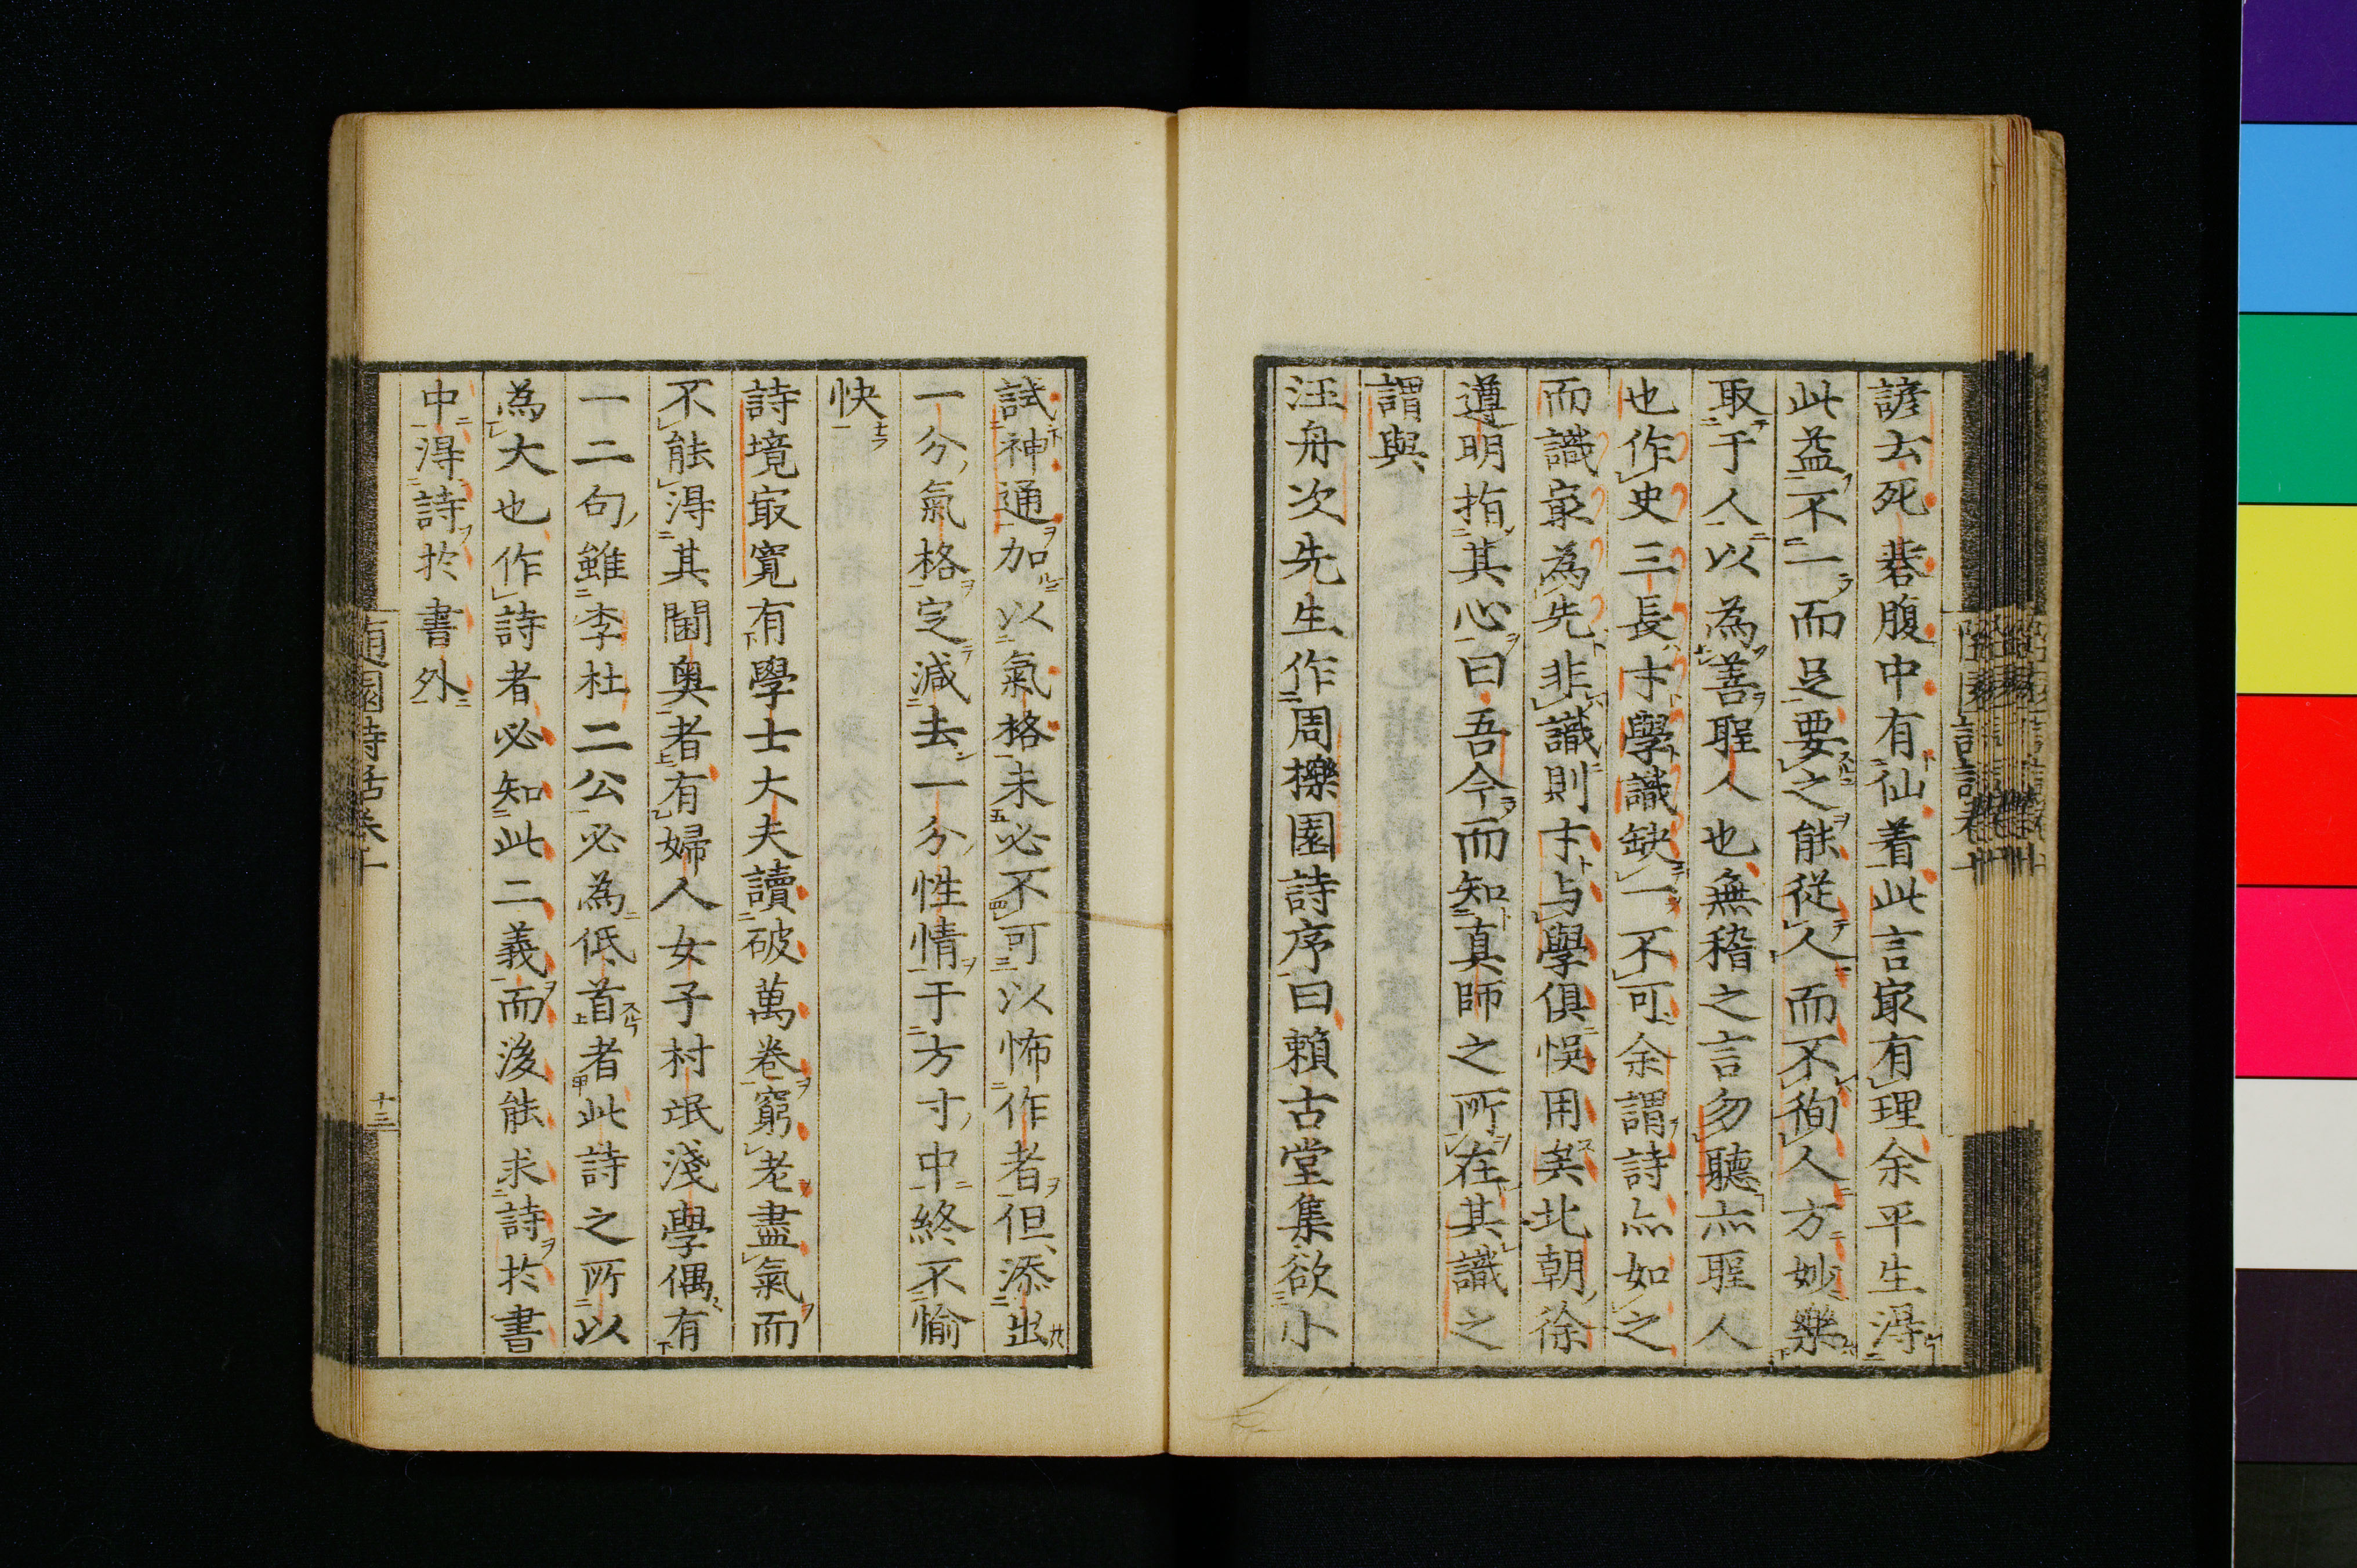 諺云死碁腹中有仙着此言㝡有理余平生淂
此益不一而足要之能從人而不徇人方妙樂
取于人以為善聖人也無稽之言勿聽亦聖人
也作史三長才學識缺一不可余謂詩亦如之
而識㝡為先非識則才与學俱悞用矣北朝徐
遵明指其心曰吾今而知真師之所在其識之
謂與
汪舟次先生作周櫟園詩序曰賴古堂集欲小
試神通加以氣格未必不可以怖作者但添出
一分氣格定減去一分性情于方寸中終不愉
快
詩境㝡寬有學士大夫讀破萬卷窮老盡氣而
不能淂其閫奥者有婦人女子村氓淺學偶有
一二句雖李杜二公必為低首者此詩之所以
為大也作詩者必知此二義而後能求詩於書
中淂詩於書外
隨園詩話卷十
十三